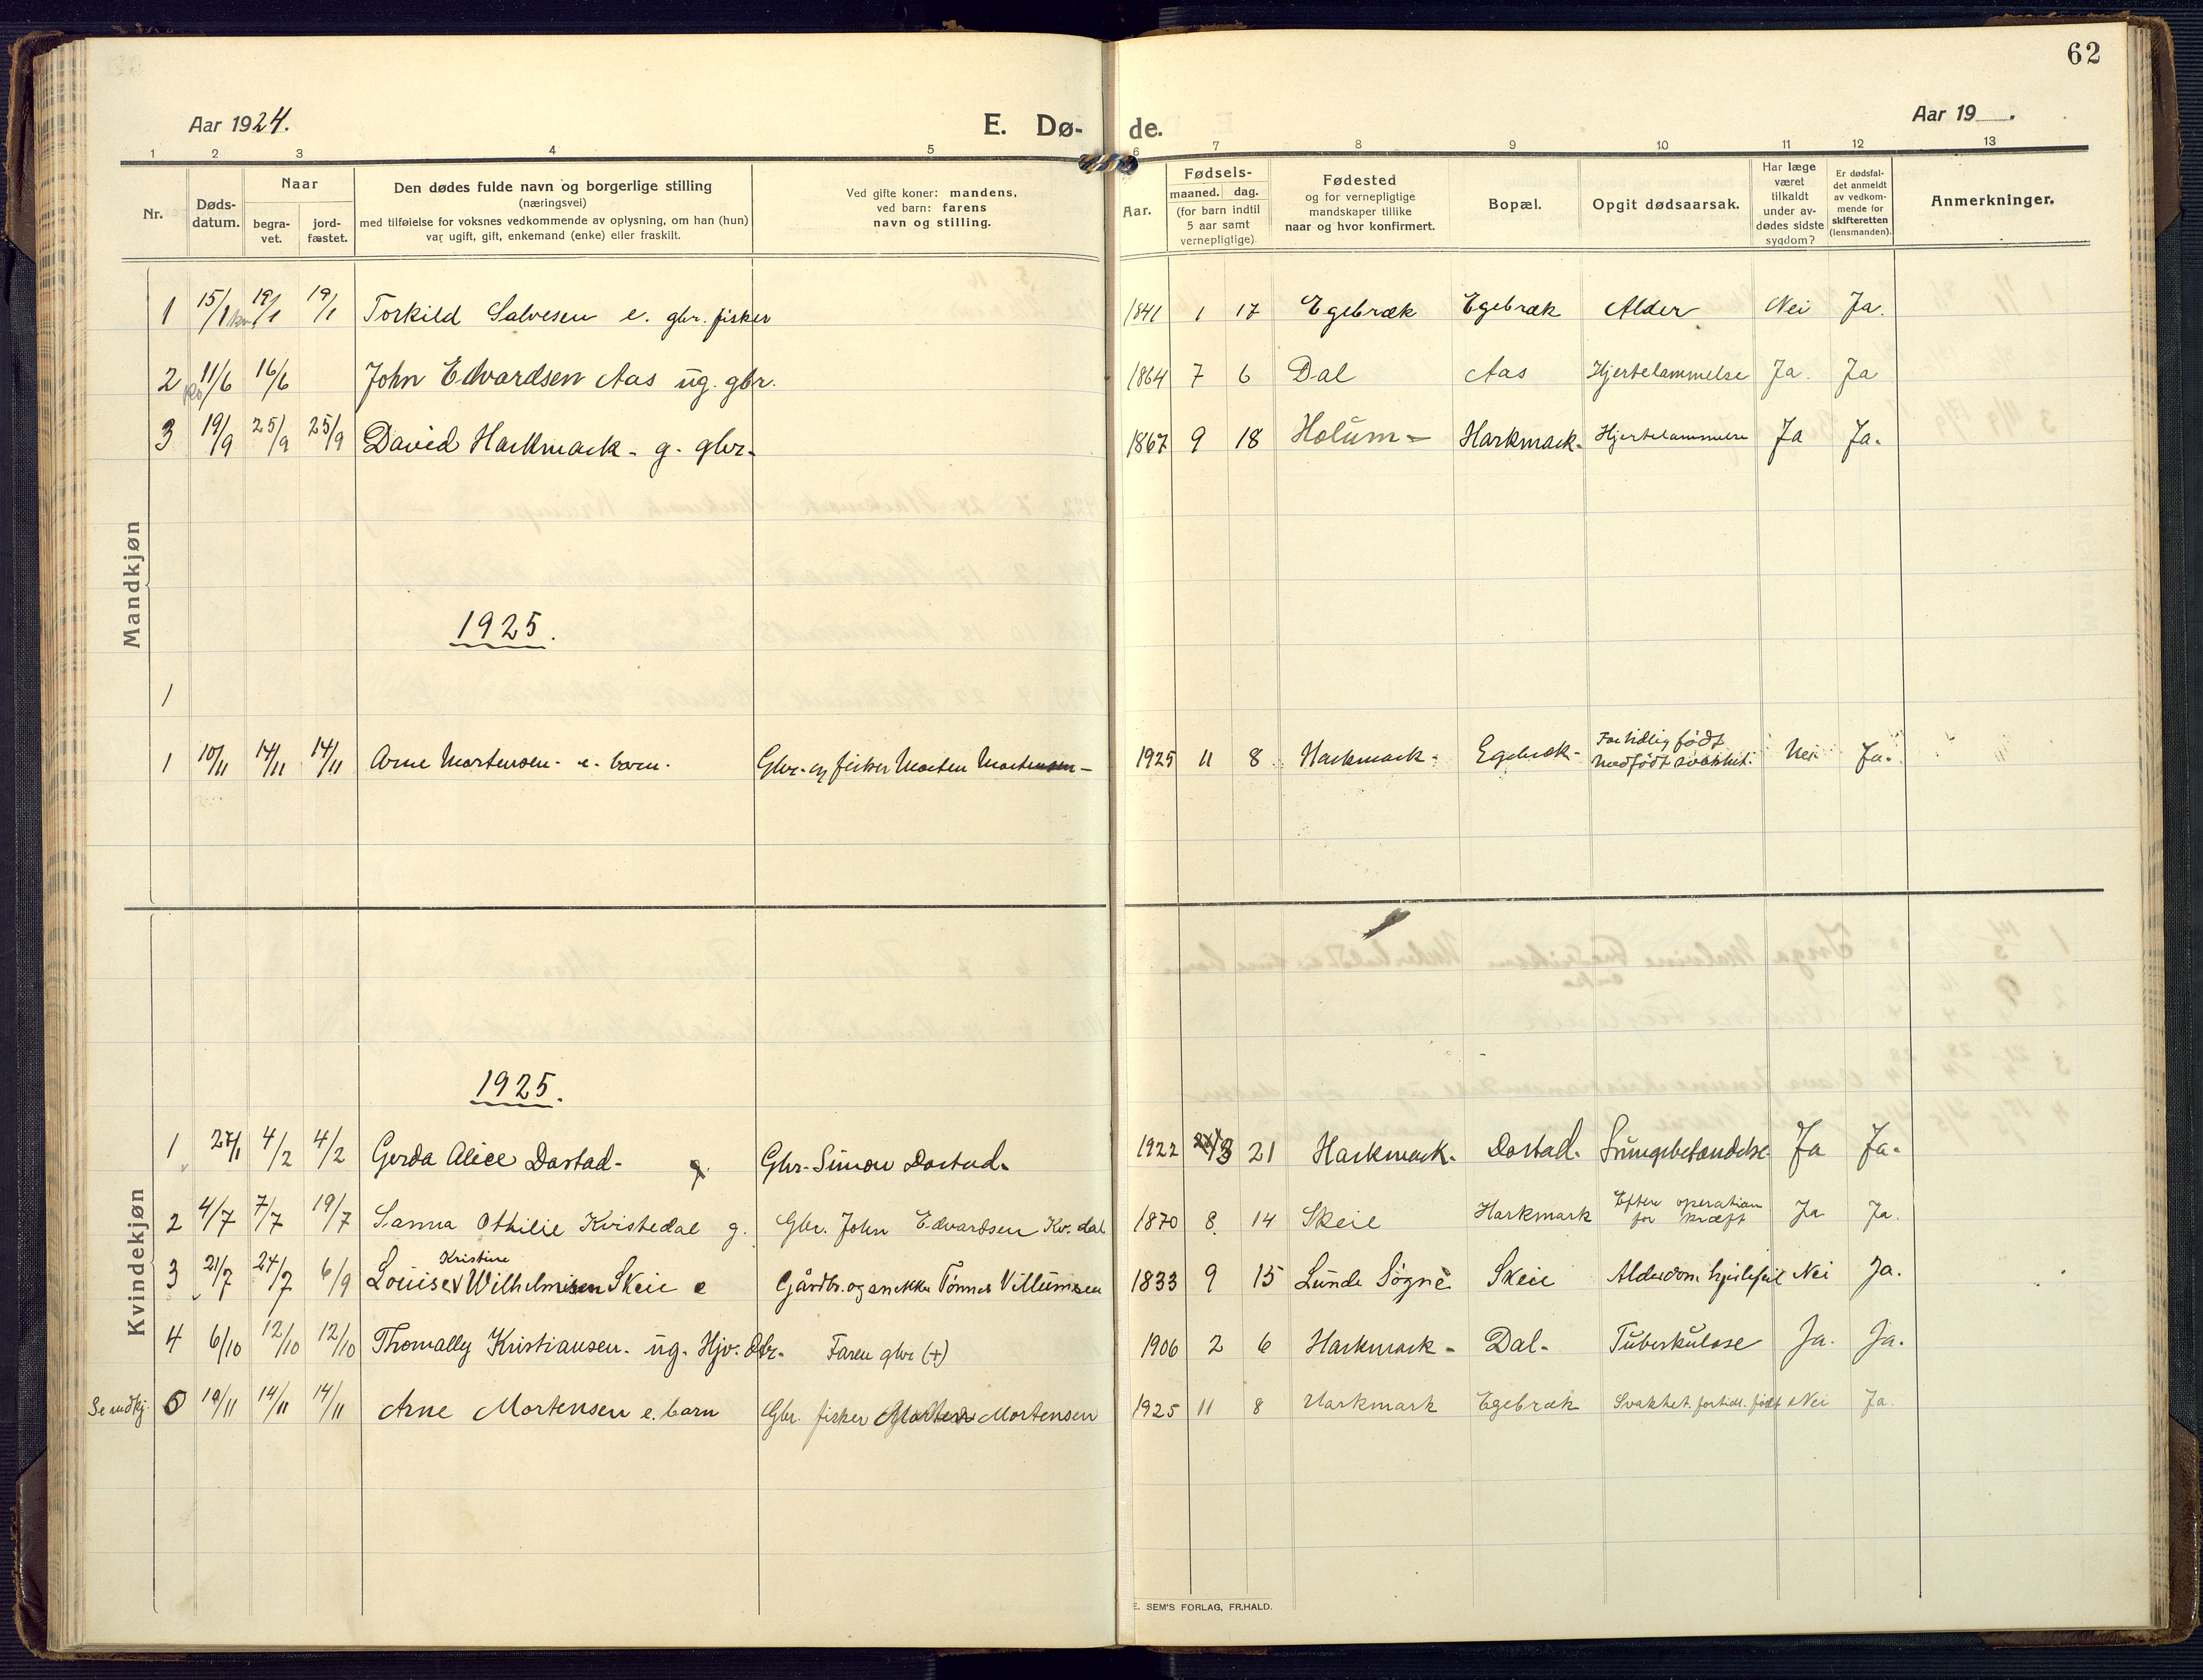 62
Aar 1924.
E. Dø- de.
Aar 19 .
1 2 3 4 5 6 7 8 9 10 11 12 13
Nr.
Døds-
datum.
Naar
begra-
vet.
jord-
fæstet.
Den dødes fulde navn og borgerlige stilling
(næringsvei)
med tilføielse for voksnes vedkommende av oplysning, om han (hun)
var ugift, gift, enkemand (enke) eller fraskilt.
Ved gifte koner: mandens,
ved barn: farens
navn og stilling.
Aar.
Fødsels-
maaned. dag.
(for barn indtil
5 aar samt
vernepligtige)
Fødested
og for vernepligtige
mandskaper tillike
naar og hvor konfirmert.
Bopæl.
Opgit dødsaarsak.
Har læge
været
tilkaldt
under av-
dødes sidste
sygdom?
Er dødsfal-
det anmeldt
av vedkom-
mende for
skifteretten
(lensmanden).
Anmerkninger.
Mandkjøn
1 15/1 19/1 19/1 Torkild Salvesen e. gbr. fisker 1841 1 17 Egebræk Egebræk Alder Nei Ja.
2 11/6 16/6 John Edvardsen Aas ug. gbr. 1864 7 6 Dal Aas Hjertelammelse Ja. Ja
3 19/9 25/9 25/9 David Harkmark - g. gbr. 1867 9 18 Holum - Harkmark - Hjertelammelse Ja Ja.
1925.
1
1 10/11 14/11 14/11 Arne Mortensen - e. barn. Gbr. og fisker Morten Mortensen - 1925 11 8 Harkmark - Egebræk - For tidlig født
Medfødt svakhet. Nei Ja.
Kvindekjøn
1925.
1 27/1 4/2 4/2 Gerda Alice Dastad - g. Gbr. Simon Dastad. 1922 3 21 Harkmark. Dastad. Lungebetændelse Ja Ja.
2 4/7 7/7 19/7 Sanna Othilie Kvistedal g. Gbr. John Edvardsen Kv. dal 1870 8 14 Skeie Harkmark Efter operation
for kræft Ja Ja.
Kristine
3 21/7 24/7 6/9 Louise Wilhelmsen Skeie e Gårdbr. og snekker Tønnes Villumsen 1833 9 15 Lunde Søgne Skeie Alderdom hjertefeil Nei Ja.
4 6/10 12/10 12/10 Thomally Kristiansen. ug. Hjv. Dtr. Faren gbr (+) 1906 2 6 Harkmark - Dal - Tuberkulose Ja. Ja.
Se mdkj. 5 10/11 14/11 14/11 Arne Mortensen e. barn Gbr. fisker Morten Mortensen 1925 11 8 Harkmark Egebræk Svakhet. for tidl. født Nei Ja.
E. SEM'S FORLAG, FR.HALD.